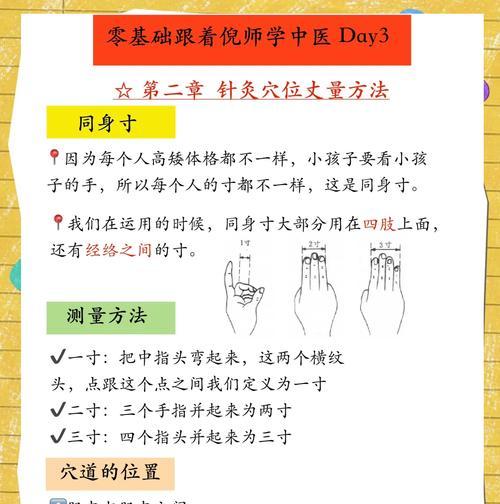 零基础跟着倪师学中医 Day3
☆ 第二章 针灸穴位丈量方法
同身寸
📍因为每个人高矮体格都不一样，小孩子要看小孩
子的手，所以每个人的寸都不一样，这是同身寸。
📍我们在运用的时候，同身寸大部分用在四肢上面，
还有经络之间的寸。
1寸 2寸 3寸
测量方法
✔一寸：把中指头弯起来，这两个横纹
头，点跟这个点之间我们定义为一寸
✔二寸：三个手指并起来为两寸
✔三寸：四个指头并起来为三寸
穴道的位置